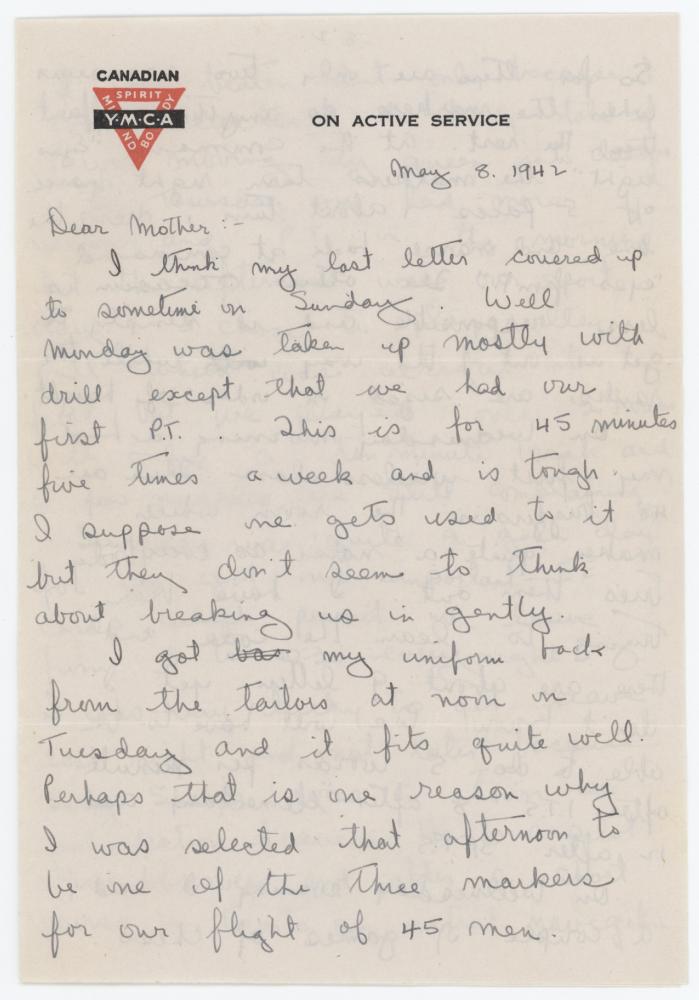 CANADIAN
SPIRIT
MIND BODY
Y·M·C·A
ON ACTIVE SERVICE
May 8. 1942
Dear Mother :-
I think my last letter covered up
to sometime on Sunday. Well
Monday was taken up mostly with
drill except that we had our
first P.T. . This is for 45 minutes
five times a week and is tough.
I suppose one gets used to it
but they don't seem to think
about breaking us in gently.
I got bac my uniform back
from the tailors at noon on
Tuesday and it fits quite well.
Perhaps that is one reason why
I was selected that afternoon to
be one of the three markers
for our flight of 45 men.